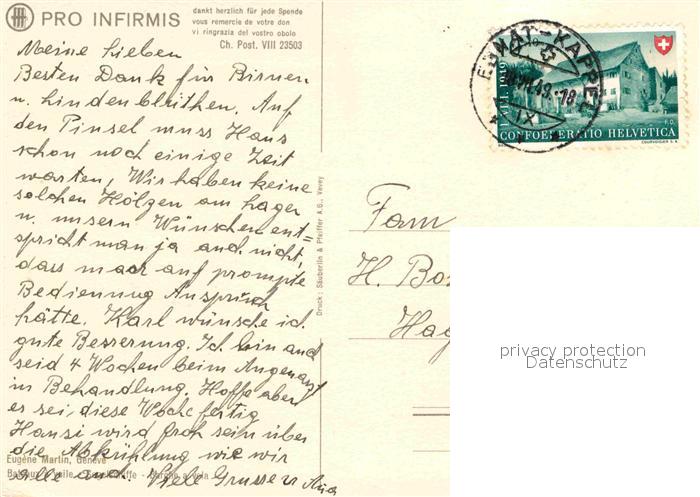 PRO INFIRMIS
dankt herzlich für jede Spende
vous remercie de votre don
vi ringrazia del vostro obolo
Ch. Post. VIII 23503
Meine Lieben
Besten Dank für Birnen
u. Lindenblüthen. Auf
den Pinsel muss Hans
schon noch einige Zeit
warten, Wir haben keine
solchen Hölzen am lager
u. unsern Wünschen ent=
spricht man ja auch nicht,
dass man auf prompte
Bedienung Anspruch
hätte. Karl wünsche ich
gute Besserung. Ich bin auch
seid 4 Wochen beim Augenarzt
in Behandlung. Hoffe aber
es sei, diese Woche fertig
Hansi wird froh sein über
die Abkühlung wie wir
alle auch. Viele Grüsse
Eugène Martin, Genève
Druck: Säuberlin & Pfeiffer A.G., Vevey
EBNAT-KAPPEL
CONFOEDERATIO HELVETICA
COURVOISIER S.A.
Fam
H.
Hag
privacy protection
Datenschutz